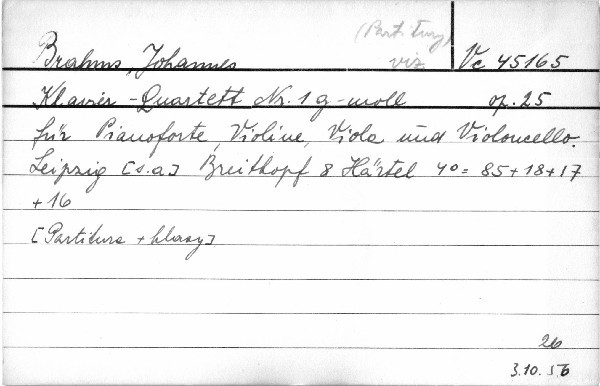 (Partitury)
Brahms, Johannes viz Vc 45165
Klavier-Quartett Nr. 1 g-moll op. 25
für Pianoforte, Violine, Viola und Violoncello.
Leipzig [s.a] Breitkopf & Härtel 4° = 85+18+17
+16
[Partitura + hlasy]
26
3.10.56